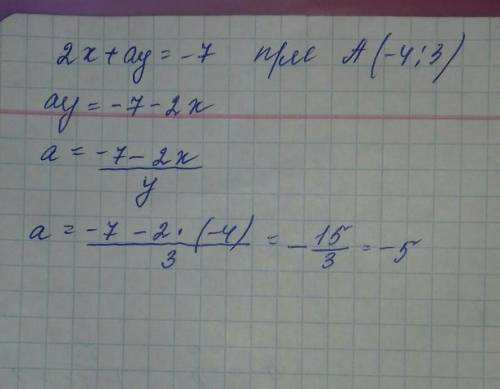 2x + ay = -7 при A(-4; 3)
ay = -7 - 2x
a = \frac{-7 - 2x}{y}
a = \frac{-7 - 2 \cdot (-4)}{3} = -\frac{15}{3} = -5